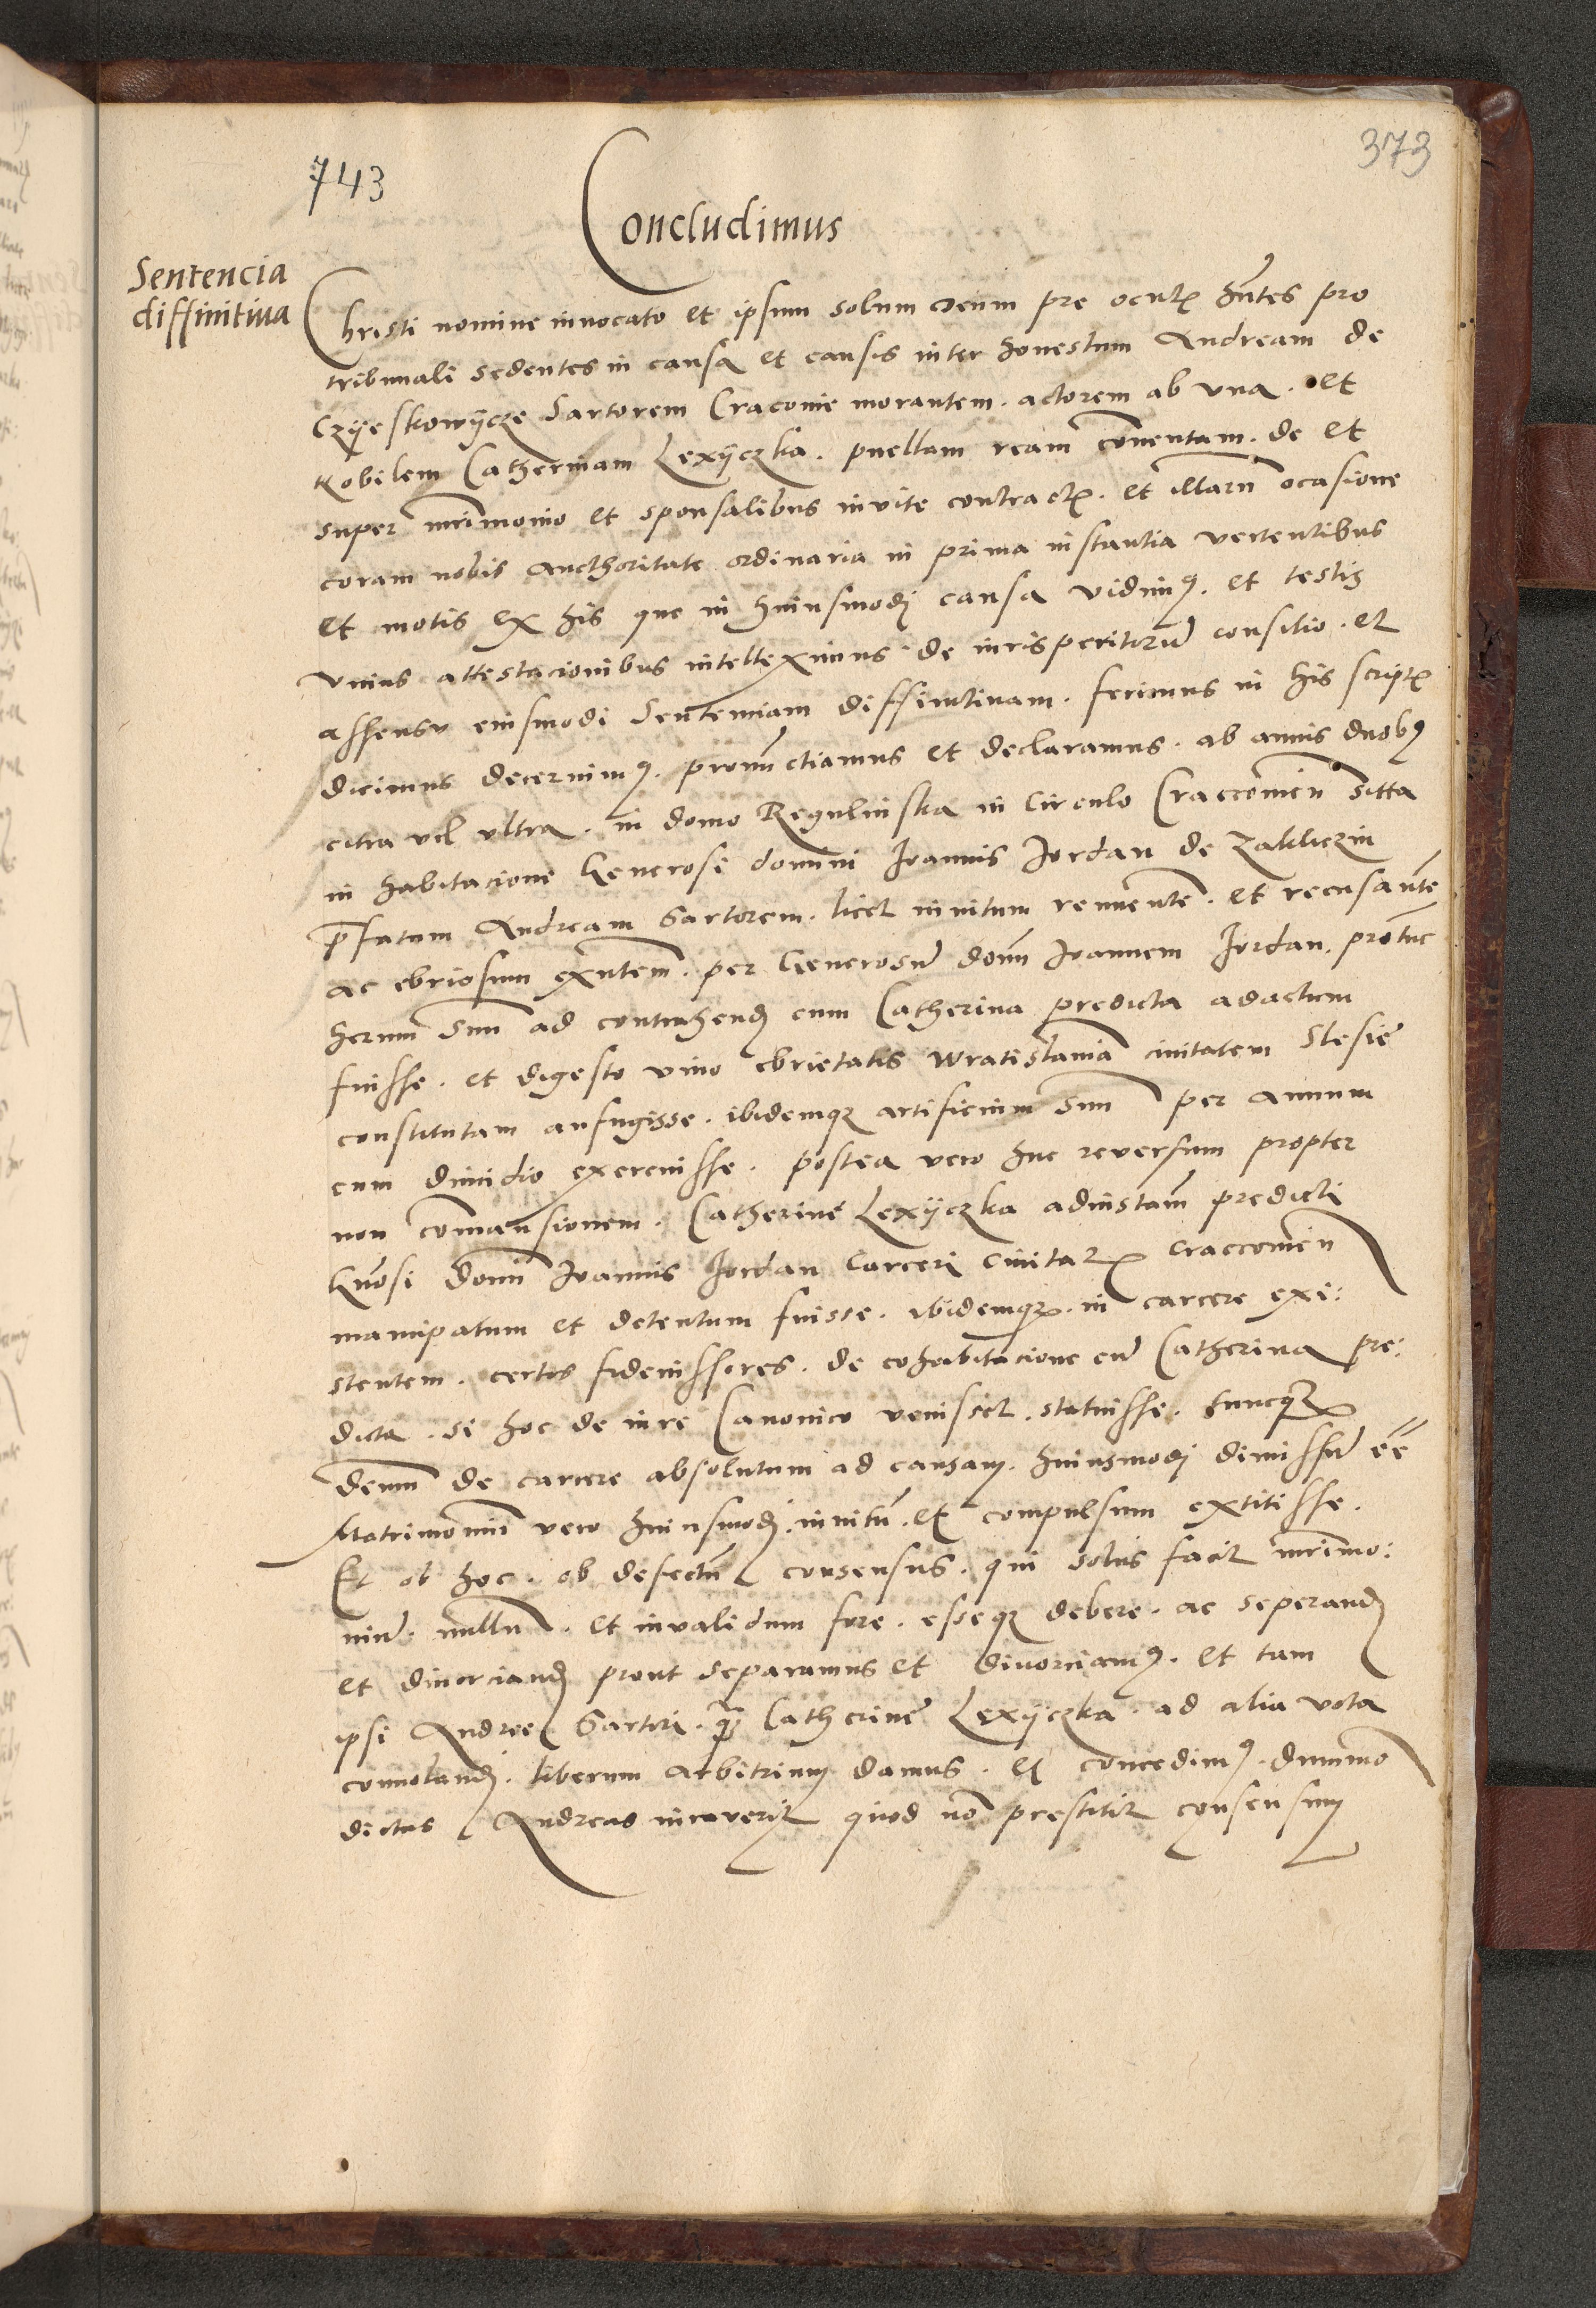 743
373
Concludimus
Sentencia
diffinitiua
Christi nomine innocato et ipsum solum deum pre ocul͠ hn͂tes pro
tribunali sedentes in causa et causis inter honestum Andream de
Czÿeskowÿcze Sartorem Cracouie morantem. actorem ab vna. et
Nobilem Catherinam Lexÿczka. puellam ream conuentam. de et
super mr͂imonio et sponsalibus inuite contract͠. et illaru͂ ocasione
coram nobis aucthoritate ordinaria in prima instantia vertentibus
et motis Ex his que in huiusmodj causa vidim9. et testis
vnius attestacionibus intelleximus. de iurisperitoru͂ consilio. et
assensu eiusmodi Sentenciam diffinitiuam. ferimus in his script͠
dicimus decernim9. pronu͂ctiamus et declaramus. ab annis duob9
citra vel vltra. in domo Regulinska in Circulo Craccouien͂ sitta
in habitacione Generosi domini Joannis Jordan de Zakliczin
p͂fatum Andream Sartorem. licet inuitum renuente͂. et recusante͂
ac ebriosum exn͂tem. per Generosu͂ dom͂ Joannem Jordan. protu͂c
herum suu͂ ad contrahend͂ cum Catherina predicta adactum
fuisse. et digesto vino ebrietatis Wratislauia͂ ciuitatem Slesie͂
constitutam aufugisse. ibidemq͂ artificium suu͂ per annum
cum dimidio exercuisse. postea vero huc reuersum propter
non comansionem. Catherine Lexÿczka adinstam͂ predicti
Gn͂osi domi͂ Joannis Jordan Carceri Ciuitat͠ Craccouien͂
mancipatum et detentum fuisse. ibidemq͂. in carcere exi:
stentem. certos fideiussores. de cohabitacione cu͂ Catherina pre:
dicta. si hoc de iure Canonico venisset. statuisse. huncq͂
demu͂ de carcere absolutum ad causam. huiusmodj dimissu͂ ee͂
Matrimoniu͂ vero huiusmodj. inuitu͂. et compulsum extitisse.
Et ob hoc. ob defectu͂ consensus. qui solus facit mr͂imo:
niu͂. nullu͂. et inualidum fore. esseq͂ debere. ac seperand͂
et diuorciand͂ prout separamus et diuorciam9. et tam
ipsi Andree Sartori. q͂ Catherine Lexÿczka. ad alia vota
conuoland͂. liberum arbitrium damus. et concedim9. dummo
dictus Andreas iurauerit quod no͂ prestitit consensum